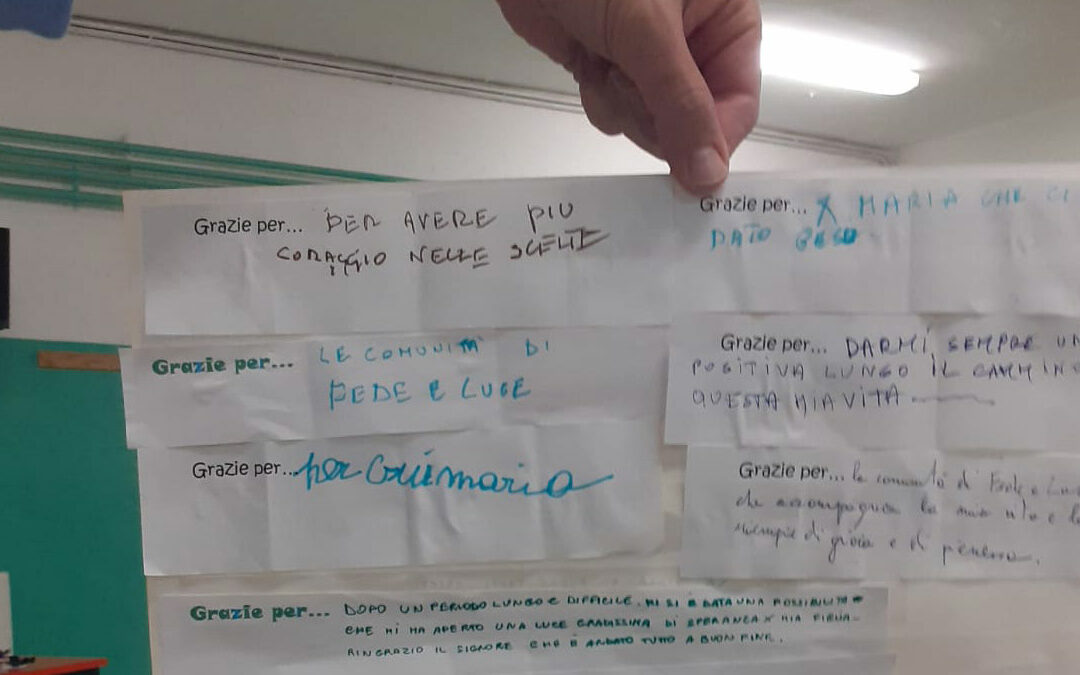 Grazie per... PER AVERE PIU
CORAGGIO NELLE SCELTE
Grazie per... X MARIA CHE CI
DATO GESU
Grazie per... LE COMUNITÀ DI
FEDE E LUCE
Grazie per... DARMI SEMPRE UN
POSITIVA LUNGO IL CAMMINO
QUESTA MIA VITA
Grazie per... per
Grazie per... la comunità di Fede e Luce
che accompagna la mia vita e la
riempie di gioia e di
Grazie per... DOPO UN PERIODO LUNGO E DIFFICILE, MI SI È DATA UNA POSSIBILITÀ
CHE MI HA APERTO UNA LUCE GRANDISSIMA DI SPERANZA X MIA FIGLIA.
RINGRAZIO IL SIGNORE CHE È ANDATO TUTTO A BUON FINE.